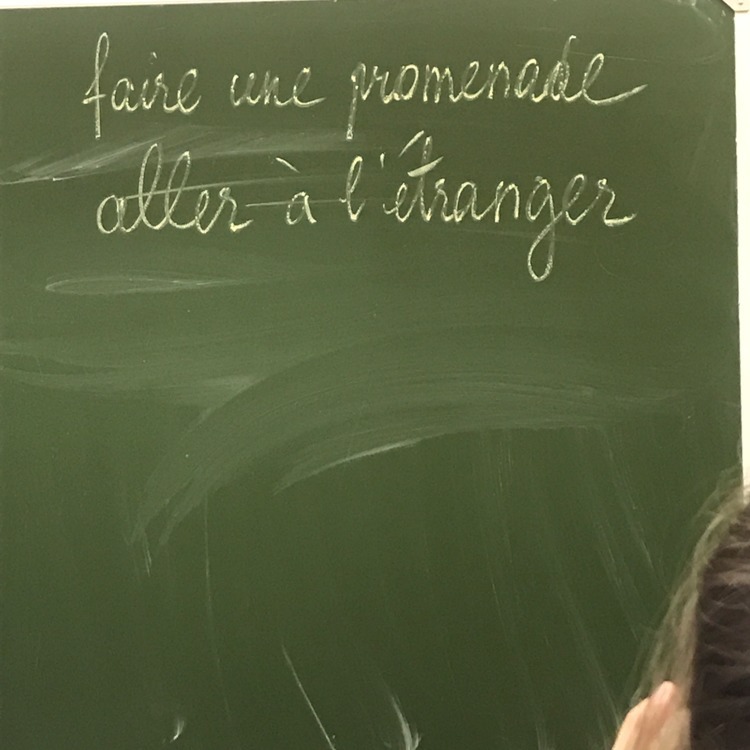 faire une promenade
aller à l'étranger